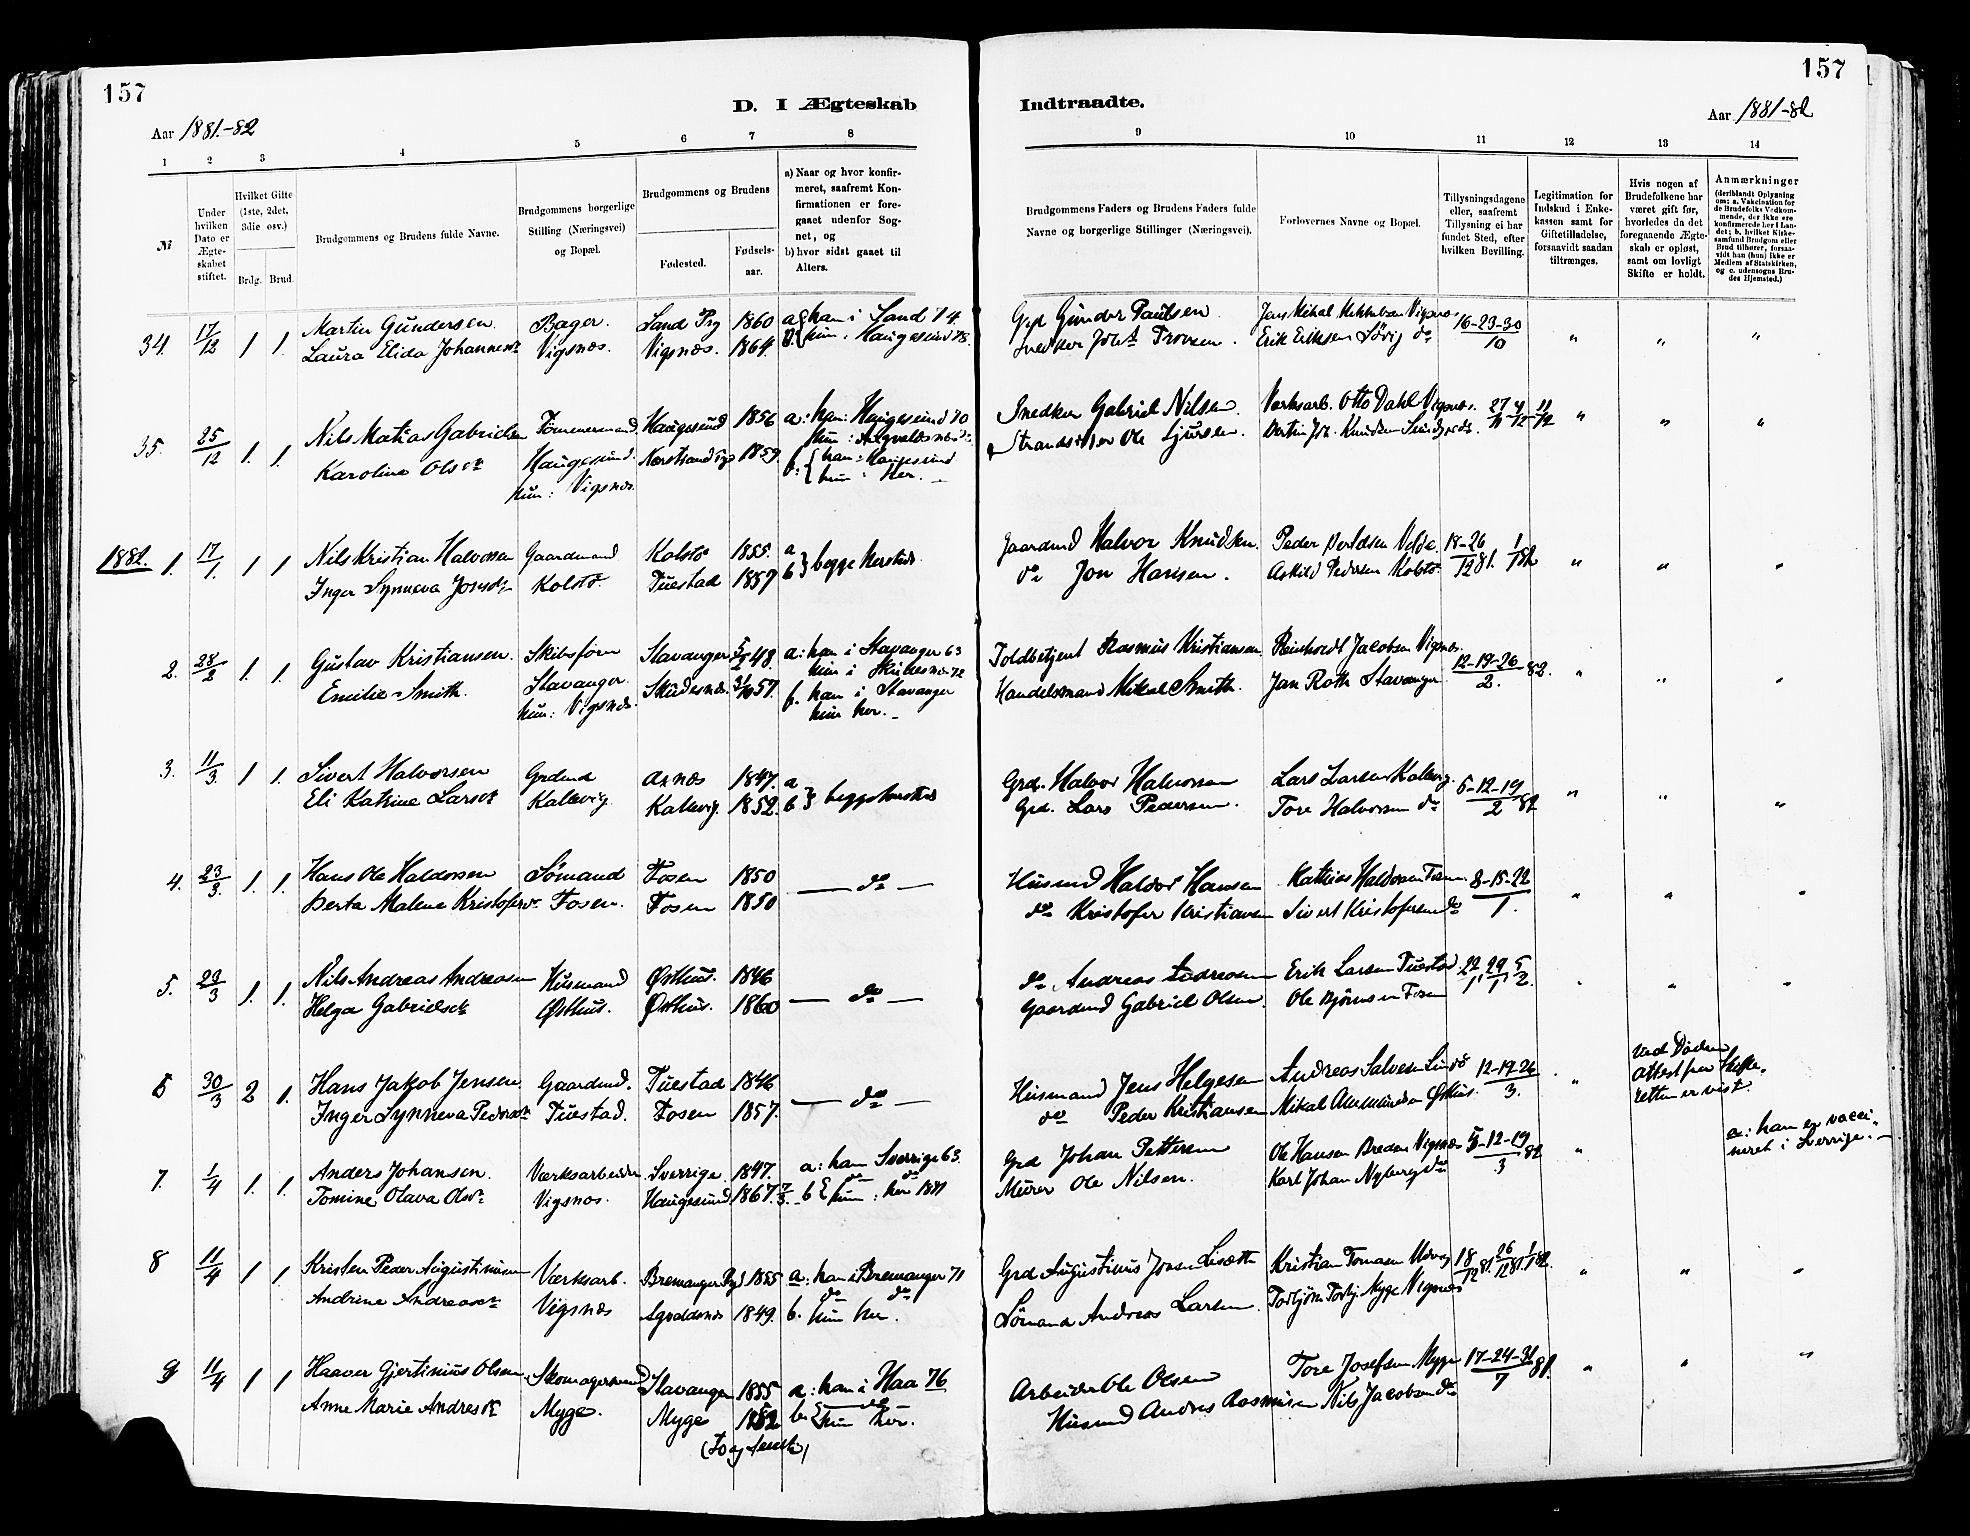 157
157
D. I Ægteskab
Indtraadte.
Aar 1881.-82
Aar 1881-82
1 2 3 4 5 6 7 8
9 10 11 12 13 14
№
Under hvilken Dato er Ægteskabet stiftet.
Hvilket Gifte (1ste, 2det, 3die osv.)
Brdg. Brud.
Brudgommens og Brudens fulde Navne.
Brudgommens borgerlige Stilling (Næringsvei) og Bopæl.
Brudgommens og Brudens
Fødested.
Fødselsaar.
a) Naar og hvor konfirmeret, saafremt Konfirmationen er foregaaet udenfor Sognet, og
b) hvor sidst gaaet til Alters.
Brudgommens Faders og Brudens Faders fulde Navne og borgerlige Stillinger (Næringsvei).
Forlovernes Navne og Bopæl.
Tillysningsdagene eller, saafremt Tillysning ei har fundet Sted, efter hvilken Bevilling.
Legitimation for Indskud i Enkekassen samt for Giftetilladelse, forsaavidt saadan tiltrænges.
Hvis nogen af Brudefolkene har været gift før, hvorledes da det foregaaende Ægteskab er opløst, samt om lovligt Skifte er holdt.
Anmærkninger
(deriblandt Oplysning om: a. Vaccination for de Brudefolks Vedkommende, der ikke ere konfirmerede her i Landet; b, hvilket Kirkesamfund Brudgom eller Brud tilhører, forsaavidt han (hun) ikke er Medlem af Statskirken, og c. udensogns Brudes Hjemsted.)
34. 17/12 1 1. Martin Gundersen. Bager. Sand Pg 1860 a. han i Sand 74. Grd Gunder Paulsen 16-23-30/10 " " "
Laura Elida Johannesd. Vigsnæs. Vigsnæs. 1864. hun i Haugesund 78. Snedker Erik Eriksen Sørig do
35. 25/12 1. 1. Nils Matias Gabrielsen Tømmermand Haugesund 1856 a: han: Haugesund 70 Snedker Gabriel Nilsen. Værksarb. Otto Dahl Vigsnæs. 27/11 4/12 11/12 " " "
Karoline Olsdt Haugesund. Nærstrand 1859. Strandsidder Ole Sjursen.
hun: Vigsnæs. b. han: Haugesund
hun: her. -
1882. 1. 17/1. 1 1 Nils Kristian Halvorsen Gaardmand Kolstø 1855. a Gaardmd Halvor Knudsen. Peder Velde. 18-26/12 81. 1/1 82 " " "
Inger Synneva Jonsdt Kolstø. Tuestad 1859 b } begge hersteds do Jon Hansen. Askild Pedersen Kolstø.
2. 28/2 1. 1. Gustav Kristiansen. Skibsfører Stavanger 48. a: han i Stavanger 63 Toldbetjent Rasmus Kristiansen Jacobsen Vigsnæs. 12-19-26/2. 82. " " "
Emilie Smith. Stavanger Skudesnæs. 57. hun i Skudesnæs 72 Handelsmand Mikal Smith. Jan Roth Stavanger
hun: Vigsnæs. b. han i Stavanger
hun her. -
3. 11/3. 1 1. Sivert Halvorsen Grdmd Arnæs 1847. a Grd. Halvor Halvorsen Lars Larsen Kallevig. 5-12-19/2 82 " " "
Eli Katrine Larsdt Kallevig. Kallevig. 1852. b } begge hersteds Grd. Lars Pedersen. Tore Halvorsen do
4. 23/3. 1. 1. Hans Ole Haldorsen Sømand Fosen 1850 — do — Husmd Haldor Hansen Mathias Haldorsen Fosen 8-15-22/1. " " "
Berta Malene Kristofersdt. Fosen. Fosen 1850 do Kristofer Kristiansen Sivert Kristofersen do
5. 23/3 1. 1. Nils Andreas Andreasen Husmand Østhus. 1846 — do — do Andreas Andreasen Erik Larsen Tuestad 22/1, 29/1, 5/2. " " "
Helga Gabrielsdt Østhus. Østhus. 1860 Gaardmd Gabriel Olsen Ole Bjørnsen Fosen
6 30/3 2 1. Hans Jakob Jensen Gaardmd. Tuestad 1846 — do — Husmand Jens Helgesen Andreas Salvesen Lindø 12-19-26/3. " ved Dødsattest fra Skifteretten er vist.
Inger Synneva Pedersdt Tuestad. Fosen 1857. do Peder Kristiansen Mikal Amundsen Østhus.
7. 1/4 1. 1. Anders Johansen. Værksarbeider Sverrige. 1847. a: han Sverrige 63. Grd Johan Pettersen Ole Hansen Breden Vigsnæs 5-12-19/3 82 " a: han er vaccineret i Sverrige. -
Tomine Olava Olsdt Vigsnæs. Haugesund 1867. 7/3. b hun: her 1881 Murer Ole Nilsen. Karl Johan Nyberg do
8 11/4 1 1. Kristen Peder Augustinusen Værksarb. Bremanger Pgd 1855 a: han i Bremanger 71 Grd Augustinus Jonsen Kristian Tomasen 18/12 81. 26/12 81. 1/1 82. " " "
Andrine Andreasdt Vigsnæs 1849. b. hun her. Sømand Andreas Larsen. Torbjørn Torbj. Myge Vigsnæs
9 11/4 1 1 Haaver Gjertinius Olsen. Skomagersvend Stavanger 1855 a: han i Haa 76 Arbeider Ole Olsen Tore Josefsen Myge 17-24-31/7 81. " " "
Anne Marie Andresdt Myge. Myge 1852 b. hun her. Husmd Andres Rasmusen Nils Jacobsen do